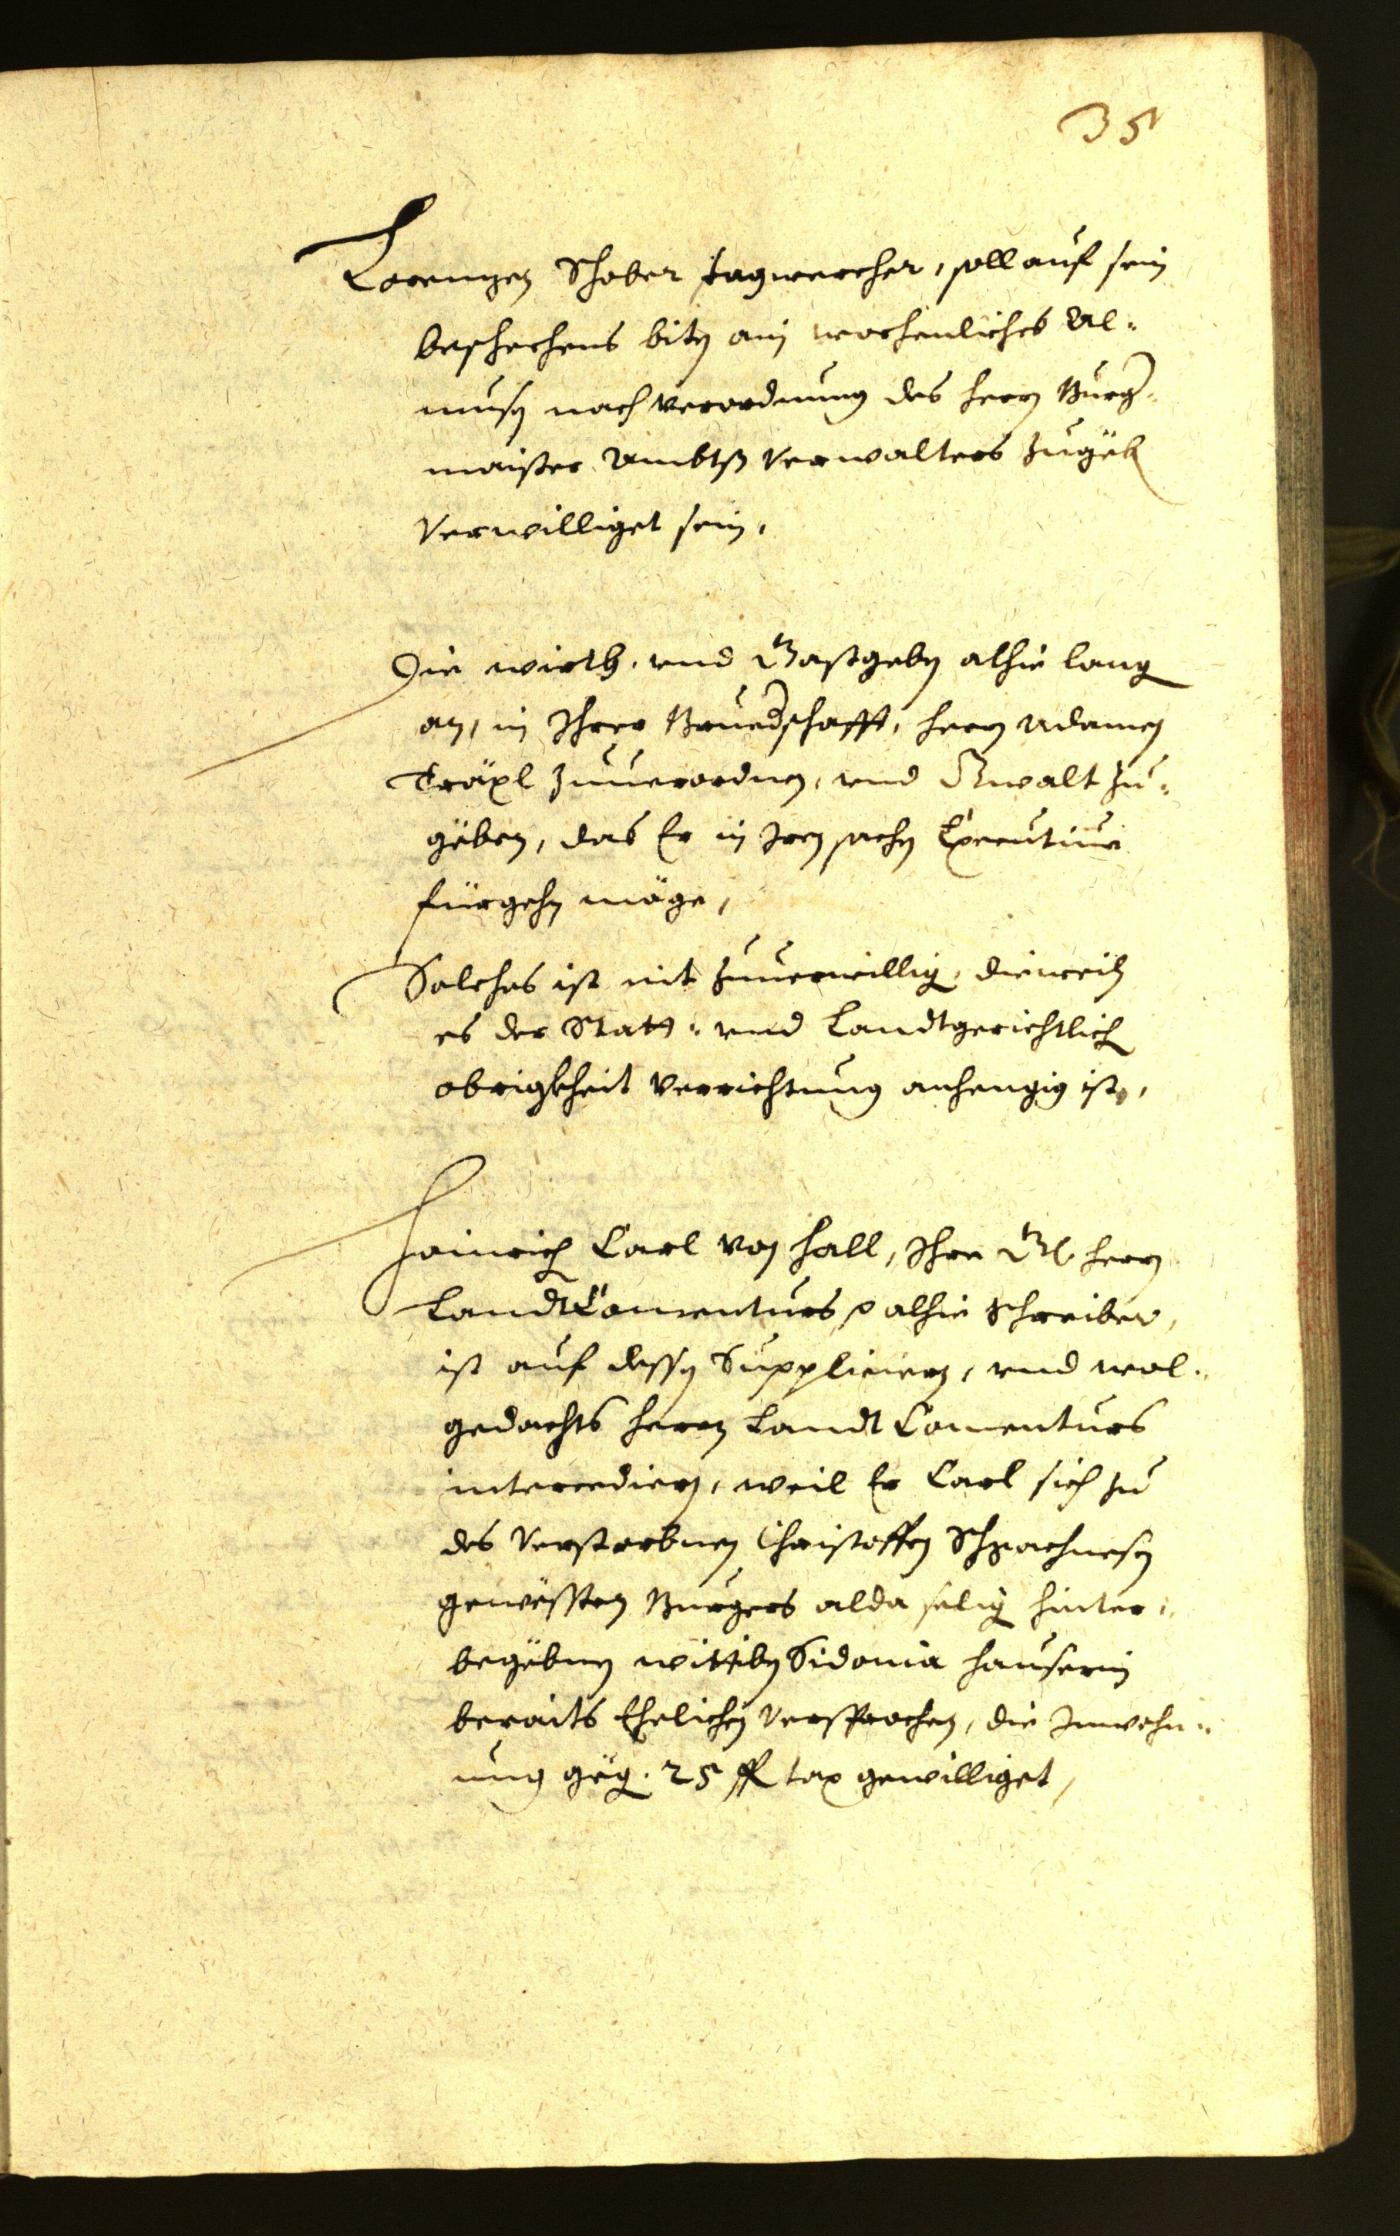 35
Lorenzen Schober tagwercher, soll auf sein
beschechens biten ain wochenliches Al-
musen nach verordnung des herrn Burger-
maister Ambtß Verwalters zugeben
Verwilliget sein.
Die wirth. vnd Gastgeben alhie lang
an, in Ihrer Bruederschafft, herrn Adamen
Träxl zuuerordnen, vnd Gwalt zu-
geben, das Er in Iren sachen Executiue
fürgehn möge,
Solches ist nit zuuerwilligen, dieweiln
es der Statt- vnd Landtgerichtlichen
obrigkheit verrichtung anhengig ist,
Hainrich Carl von Hall, Ihre G. herrn
Landt Comenturs alhie Schreiber,
ist auf dessen Supplicieren, vnd wol-
gedachts herrn Landt Comenturs
intercedieren, weil Er Carl sich zu
des Verstorbnen Christoffen
gewesten Burgers alda selig hinter-
wittiben Sidonia Hauserin
beraits Ehelichen Versprochen, die Inwohn-
ung gegen. 25 fl tax gewilliget,